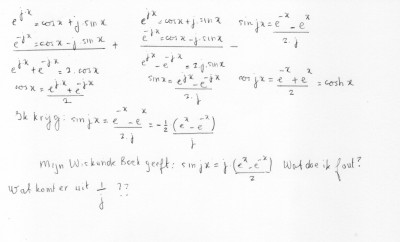 e^jx = cos x + j. sin x
e^-jx = cos x - j sin x +
e^jx + e^-jx = 2. cos x
cos x = (e^jx + e^-jx)/2
e^jx = cos x + j. sin x
e^-jx = cos x - j. sin x -
e^jx - e^-jx = 2.j. sin x
sin x = (e^jx - e^-jx)/(2.j)
sin jx = (e^-x - e^x)/(2.j)
cos jx = (e^-x + e^x)/2 = cosh x
Ik kryg: sin jx = (e^-x - e^x)/(2.j) = -1/2 (e^x - e^-x)/j
Mijn Wiskunde Boek geeft: sin jx = j (e^x - e^-x)/2 Wat doe ik fout?
Wat komt er uit 1/j ??